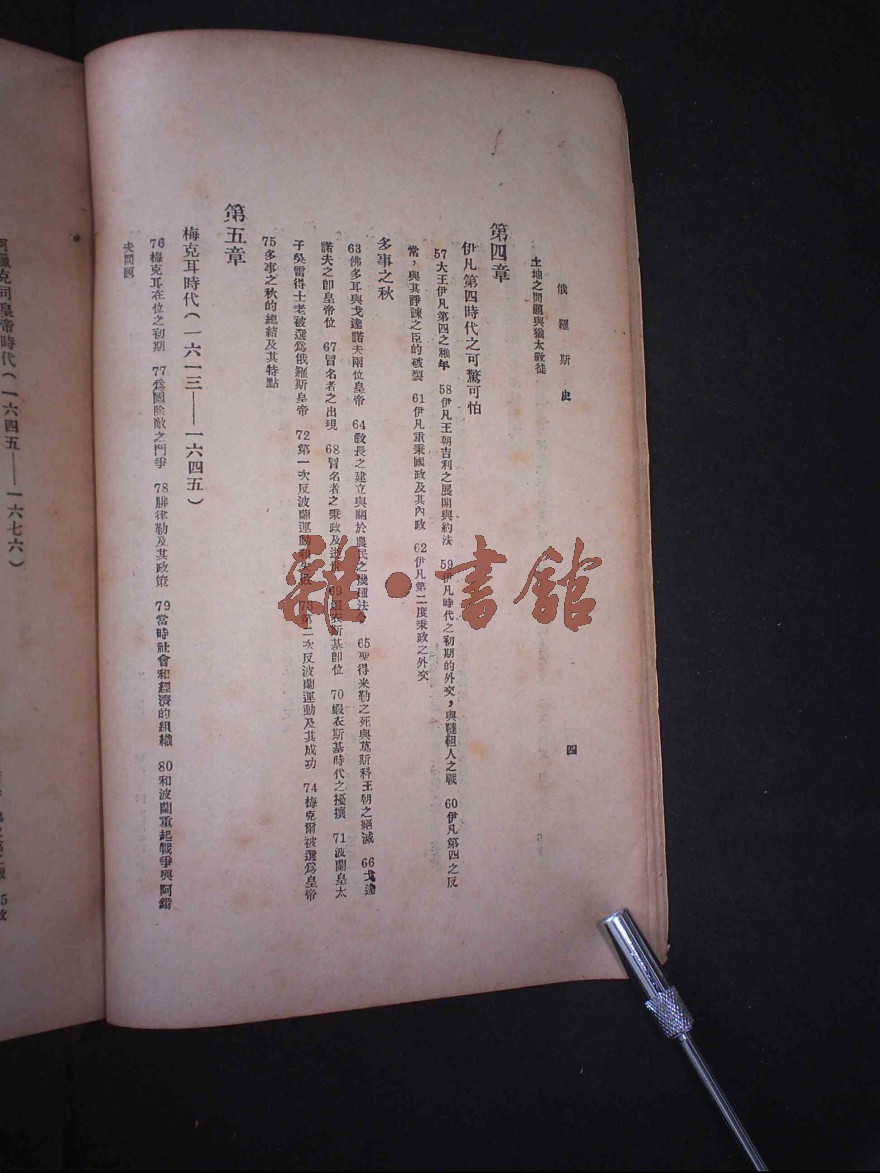 俄羅斯史
四
土地之問題與猶太教徒
第四章
伊凡第四時代之可驚可怕
57大王伊凡第四之雅年 58伊凡王朝吉利之展開與約法 59伊凡時代之初期的外交，與韃靼人之戰 60伊凡第四之反
常，與其諍諫之臣的破裂 61伊凡重秉國政及其內政 62伊凡第二度秉政之外交
多事之秋
63佛多耳與戈達諾夫兩位皇帝 64教長之建立與關於農民之幾種法令 65聖得米勒之死與莫斯科王朝之絕滅 66戈達
諾夫之卽皇帝位 67冒名者之出現 68冒名者之秉政及 69 衣斯基卽位 70蝦衣斯基時代之擾攘 71波蘭皇太
子吳雷得士老被選爲俄羅斯皇帝 72第一次反波蘭運動 73第二次反波蘭運動及其成功 74梅克爾被選爲皇帝
75多事之秋的總結及其特點
第五章
梅克耳時代（一六一三——一六四五）
76梅克耳在位之初期 77爲國除敵之鬥爭 78腓律勒及其政策 79當時社會和經濟的組織 80和波蘭重起戰爭與阿錯
夫問題
克司皇帝時代（一六四五——一六七六）
雜·書館